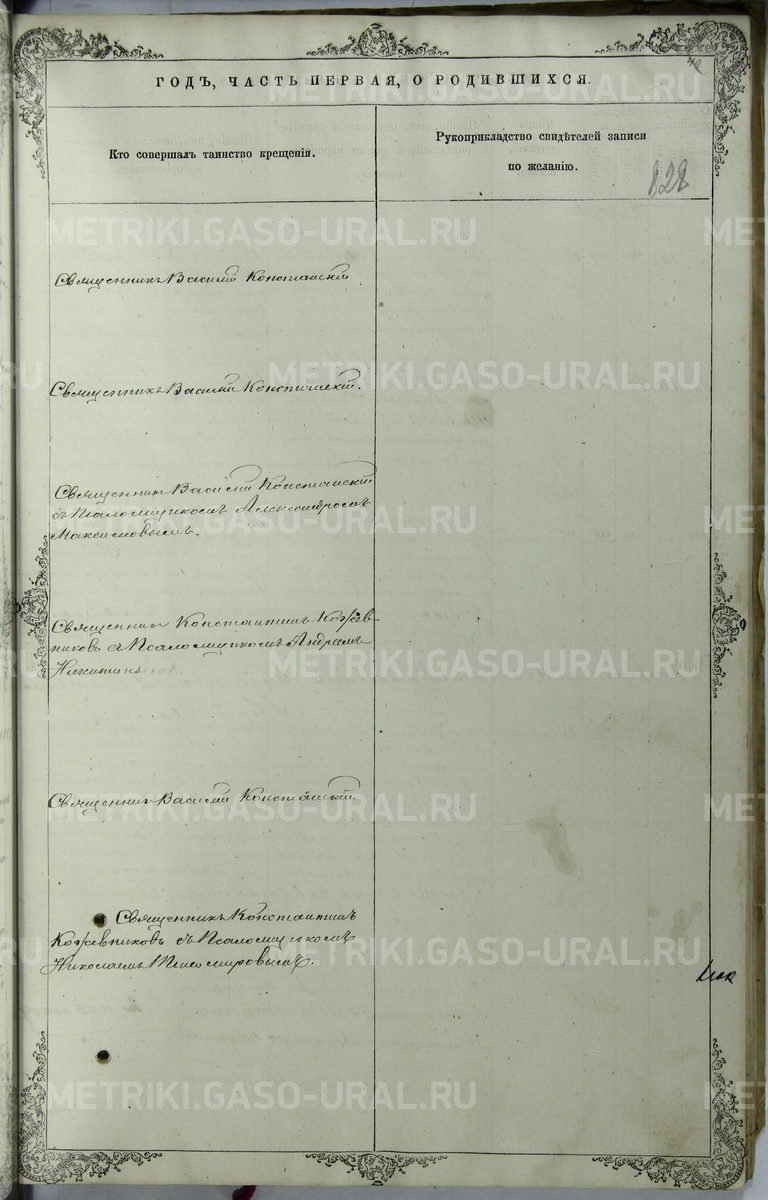 ГОДЪ, ЧАСТЬ ПЕРВАЯ, О РОДИВШИХСЯ.
Кто совершалъ таинство крещенія.
Рукоприкладство свидѣтелей записи
по желанію.
828
Священникъ Василій Констанскій
Священникъ Василій Констанскій.
Священникъ Василій Констанскій
съ Псаломщикомъ Александромъ
Максимовымъ.
Священникъ Константинъ Кожев-
никовъ съ Псаломщикомъ Андреемъ
Никитинымъ
Священникъ Василій Констанскій
Священникъ Константинъ
Кожевниковъ съ Псаломщикомъ
Николаемъ Тихомировымъ.
METRIKI.GASO-URAL.RU